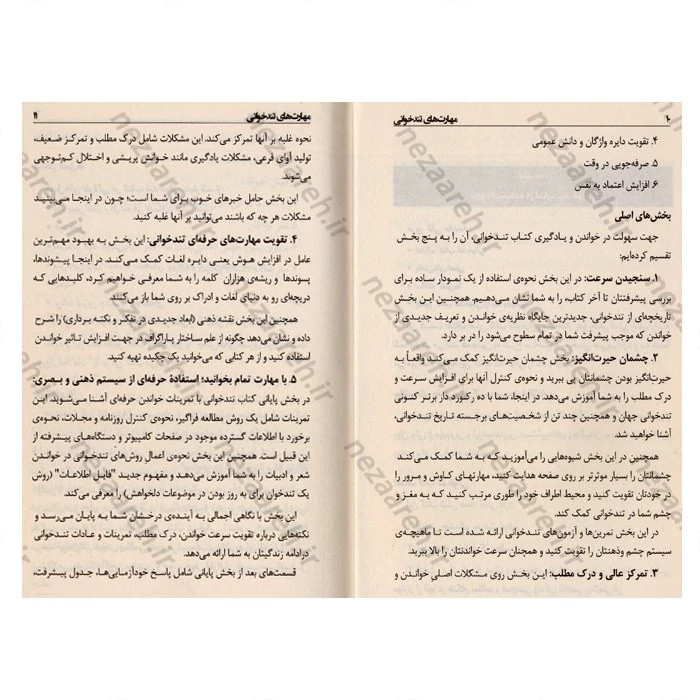 ۱۰ مهارت‌های تندخوانی
۴. تقویت دایره واژگان و دانش عمومی
۵. صرفه‌جویی در وقت
۶. افزایش اعتماد به نفس
بخش‌های اصلی
جهت سهولت در خواندن و یادگیری کتاب تندخوانی، آن را به پنج بخش
تقسیم کرده‌ایم:
۱. سنجیدن سرعت: در این بخش نحوه‌ی استفاده از یک نمودار ساده برای
بررسی پیشرفتتان تا آخر کتاب، را به شما نشان می‌دهیم. همچنین این بخش
تاریخچه‌ای از تندخوانی، جدیدترین جایگاه نظریه‌ی خواندن و تعریف جدیدی از
خواندن که موجب پیشرفت شما در تمام سطوح می‌شود را در بر دارد.
۲. چشمان حیرت‌انگیز: بخش چشمان حیرت‌انگیز کمک می‌کند واقعاً به
حیرت‌انگیز بودن چشمانتان پی ببرید و نحوه‌ی کنترل آنها برای افزایش سرعت و
درک مطلب را به شما آموزش می‌دهد. در اینجا، شما با ده رکورد دار برتر کنونی
تندخوانی جهان و همچنین چند تن از شخصیت‌های برجسته تاریخ تندخوانی،
آشنا خواهید شد.
همچنین در این بخش شیوه‌هایی را می‌آموزید که به شما کمک می‌کند
چشمانتان را بسیار موثرتر بر روی صفحه هدایت کنید، مهارتهای کاوش و مرور را
در خودتان تقویت کنید و محیط اطراف خود را طوری مرتب کنید که به مغز و
چشم شما در تندخوانی کمک کند.
در این بخش تمرین‌ها و آزمون‌های تندخوانی ارائه شده است تا ماهیچه‌ی
سیستم چشم وذهنتان را تقویت کنید و همچنان سرعت خواندنتان را بالا ببرید.
۳. تمرکز عالی و درک مطلب: این بخش روی مشکلات اصلی خواندن و
مهارت‌های تندخوانی ۱۱
نحوه غلبه بر آنها تمرکز می‌کند. این مشکلات شامل درک مطلب و تمرکز ضعیف،
تولید آوای فرعی، مشکلات یادگیری مانند خوانش پریشی و اختلال کم‌توجهی
می‌شوند.
این بخش حامل خبرهای خوب برای شما است؛ چون در اینجا می‌بینید
مشکلات هر چه که باشند می‌توانید بر آنها غلبه کنید.
۴. تقویت مهارت‌های حرفه‌ای تندخوانی: این بخش به بهبود مهم‌ترین
عامل در افزایش هوش یعنی دایره لغات کمک می‌کند. در اینجا پیشوندها،
پسوندها و ریشه‌ی هزاران کلمه را به شما معرفی خواهیم کرد، کلیدهایی که
دریچه‌ای رو به دنیای لغات و ادراک بر روی شما باز می‌کنند.
همچنین این بخش نقشه ذهنی (ابعاد جدیدی در تفکر و نکته برداری) را شرح
داده و نشان می‌دهد چگونه از علم ساختار پاراگراف در جهت افزایش تاثیر خواندن
استفاده کنید و از هر کتابی که می‌خوانید یک چکیده تهیه کنید.
۵. با مهارت تمام بخوانید؛ استفادۀ حرفه‌ای از سیستم ذهنی و بصری:
در بخش پایانی کتاب تندخوانی با تمرینات خواندن حرفه‌ای آشنا می‌شوید. این
تمرینات شامل یک روش مطالعه فراگیر، نحوه‌ی کنترل روزنامه و مجلات، نحوه‌ی
برخورد با اطلاعات گسترده موجود در صفحات کامپیوتر و دستگاه‌های پیشرفته از
این قبیل است. همچنین این بخش نحوه‌ی اعمال روش‌های تندخوانی در خواندن
شعر و ادبیات را به شما آموزش می‌دهد و مفهوم جدید "فایل اطلاعات" (روش
یک تندخوان برای به روز بودن در موضوعات دلخواهش) را معرفی می‌کند.
این بخش با نگاهی اجمالی به آینده‌ی درخشان شما به پایان می‌رسد و
نکته‌هایی درباره تقویت سرعت خواندن، درک مطلب، تمرینات و عادات تندخوانی
در ادامه زندگیتان به شما ارائه می‌دهد.
قسمت‌های بعد از بخش پایانی شامل پاسخ خودآزمایی‌ها، جدول پیشرفت،
nezaareh.ir